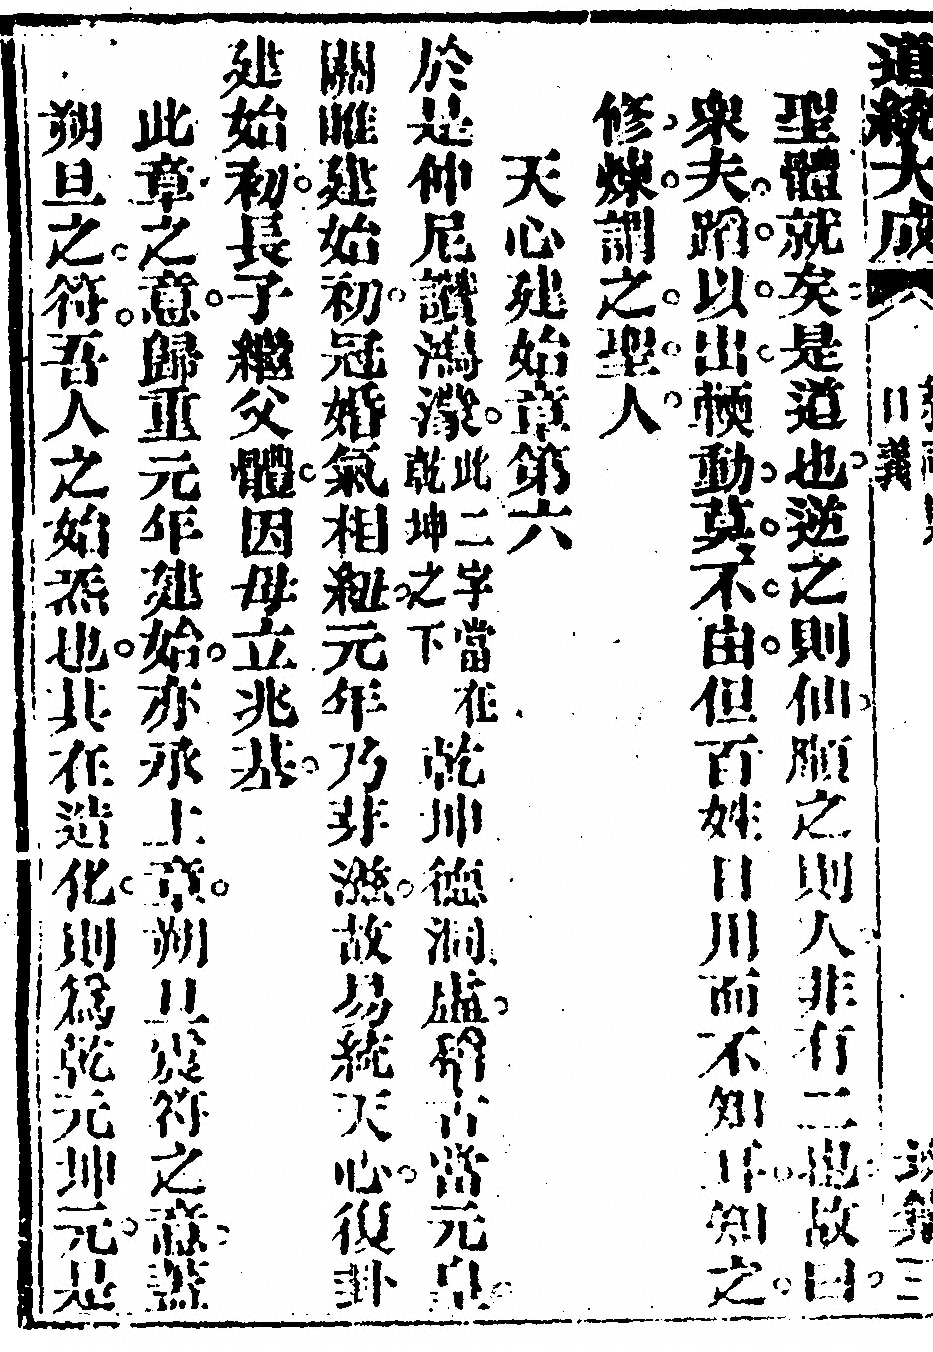 道統大成
口義
三
聖體就矣是道也逆之則仙順之則人非有二也故曰
衆夫蹈以出輭動莫不由但百姓日用而不知耳知之
修煉謂之聖人
天心建始章第六
於是仲尼讚鴻濛此二字當在乾坤之下乾坤德洞虛稽古當元皇
關雎建始初冠婚氣相紐元年乃芽滋故易統天心復卦
建始初長子繼父體因母立兆基
此章之意歸重元年建始亦承上章朔旦震符之意蓋
朔旦之符吾人之始炁也其在造化則為乾元坤元是